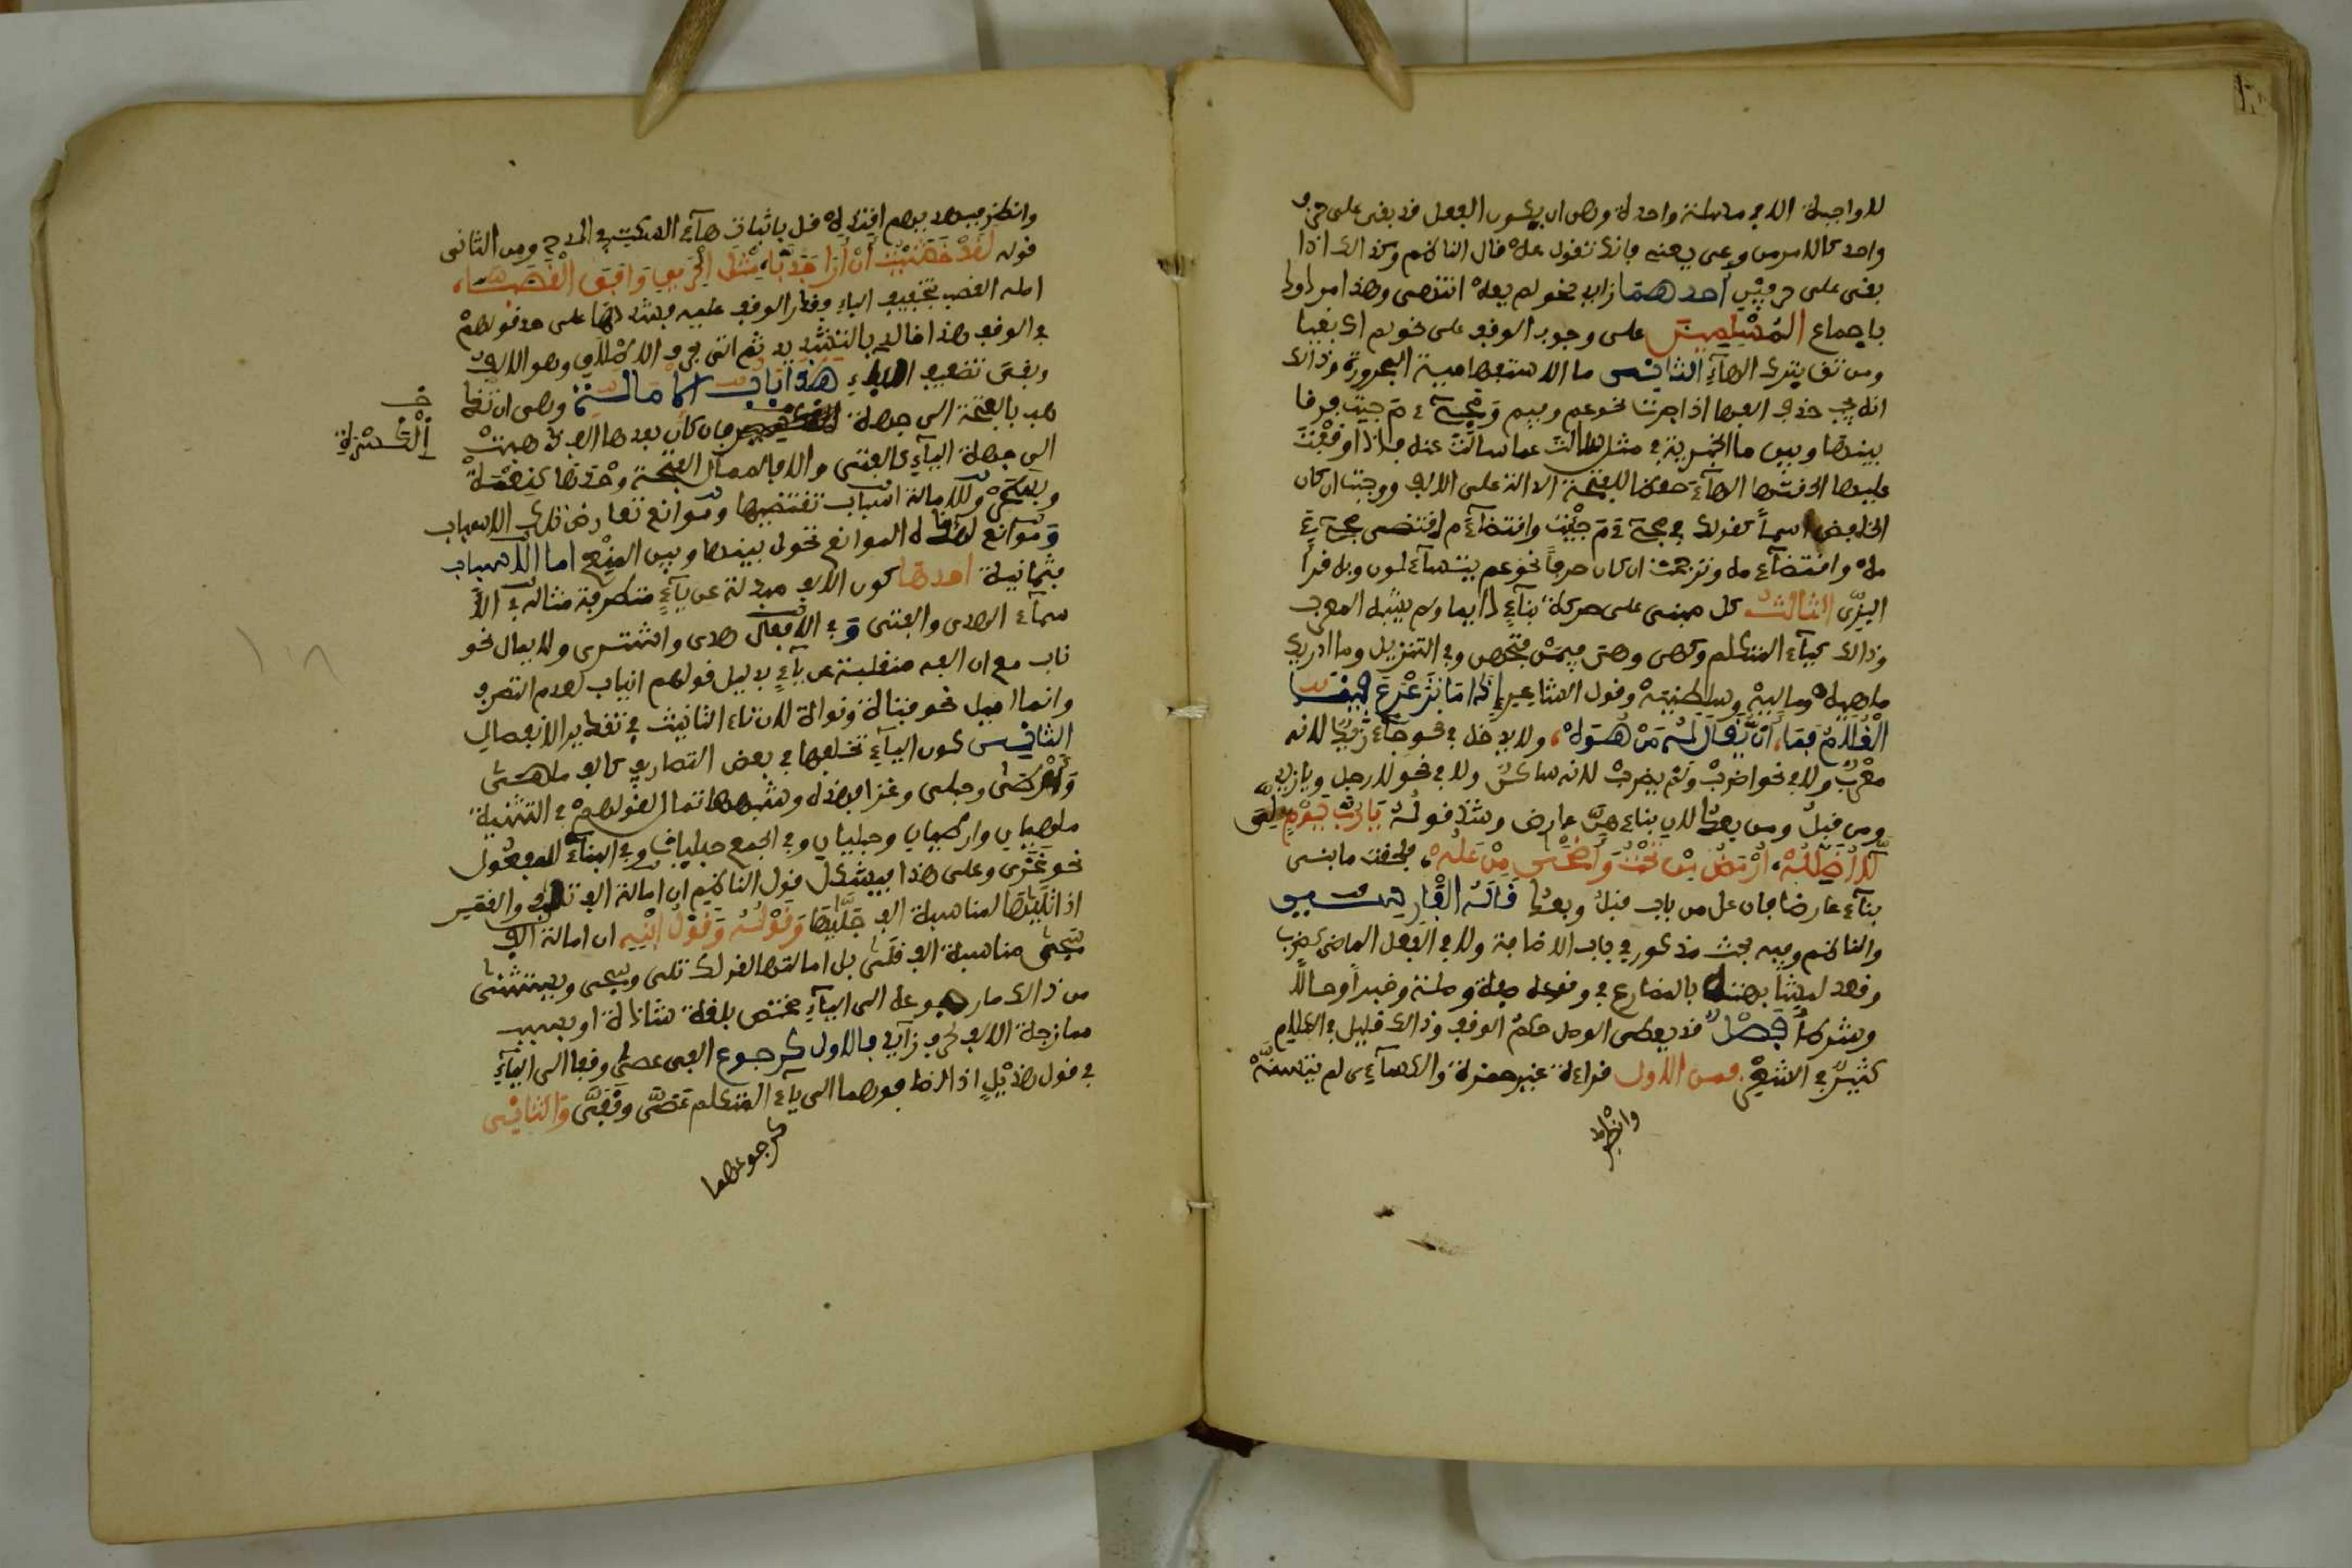 لا واجبة الا في مسئلة واحدة وهى ان يكون الفعل قد بقى على حرف
واحد كالامر من وعى يعى فانك تقول عه قال الناظم وكذالك اذا
بقى على حرفين احدهما زايد نحو لم يعه انتهى وهذا مردود
باجماع المسلمين على وجوب الوقف على نحو لم اك بغيا
ومن تق بترك الهآء الثانى ما الاستفهامية المجرورة وذالك
انه يجب حذف الفها اذا جرت نحو عم وفيم ومجىء م جيت فرقا
بينها وبين ما الخبرية في مثل سالت عما سالت عنه فاذا وقفت
عليها الحقتها الهآء حفظا للفتحة الدالة على الالف ووجبت ان كان
الخافض اسماً كقولك في مجىء م جيت واقتضآء م اقتضى مجىء
مه واقتضآء مه وترجحت ان كان حرفاً نحو عم يتسآءلون وبه قرأ
البزّى الثالث كل مبنى على حركة بنآءً دايما ولم يشبه المعرب
وذالك كيآء المتكلم وكهى وهو فيمن فتحهن وفي التنزيل وما ادريك
ماهيه وماليه وسلطنيه وقول الشاعر اذا ما ترعرع فينا
الْغُلَامُ فما، أن يُّقال لَهُ مَنْ هُوَهْ، ولا يدخل في نحو جآء زيد لانه
معرب ولا في نحو اضربْ ولم يضربْ لانه ساكن ولا في نحو لا رجل ويا زيد
ومن قبل ومن بعد لان بناءهنّ عارض وشذّ قوله يَا رُبَّ يَوْمٍ لِّى
لَّا أُظَلَّلُهْ، أُرْمَضُ مِن تَحْتُ وَأُضْحَى مِنْ عَلُهْ، فلحقت ما بنى
بنآء عارضا فان عل من باب قبل وبعد قاله الفارسى
والناظم وفيه بحث مذكور في باب الاضافة ولا في الفعل الماضى كضرب
وقعد لمشابهته بالمضارع في وقوعه صلة وصفة وخبراً وحالا
وشرطاً فصل قد يعطى الوصل حكم الوقف وذالك قليل في الكلام
كثير في الشعر فمن الاول قراءة غير حمزة والكسآءى لم يتسنّهْ
وانظر
وانظر فبهديهم اقتده قل باثبات هآء السكت في الدرج ومن الثانى
قوله لَقَدْ خَشِيتُ أَنْ أَرَا جَدَبَّا، مِثْلَ الْحَرِيقِ وَافَقَ الْقَصَبَّا،
اصله القصب بتخفيف الباء وقدر الوقف عليه فشددها على حد قولهمْ
في الوقف هذا خالد بالتشديد ثم اتى بحرف الاطلاق وهو الالف
وبقى تضعيف الباء هذا باب الامالة وهى ان تذ
هب بالفتحة الى جهة الكسرة فان كان بعدها الف ذهبت
خ
اَلْكَسْرَةِ
الى جهة اليآء كالفتى والا فالممال الفتحة وحدها كنعمة
وبسحر وللامالة اسباب تقتضيها وموانع تعارض تلك الاسباب
وموانع لهذه الموانع تحول بينها وبين المنع اما الاسباب
فثمانية احدها كون الالف مبدلة عن يآء متطرفة مثاله في الأ
سمآء الهدى والفتى وفي الافعال هدى واشترى ولا يمال نحو
ناب مع ان الفه منقلبة عن يآء بدليل قولهم انياب لعدم التطرف
وانما اميل نحو فتاة ونواة لان تاء التانيث في تقدير الانفصال
الثانى كون اليآء تخلفها في بعض التصاريف كالف ملهى
وأرطى وحبلى وغزا فهذه وشبهها تمال لقولهم في التثنية
ملهيان وارطيان وحبليان وفي الجمع حبليات وفي البنآء للمفعول
نحو غُزى وعلى هذا فيشكل قول الناظم ان امالة الف تلا والقمر
اذا تَلَيهَا لمناسبة الف جَلَّيهَا وَقَوْلُهُ وَقَوْلُ ابْنِهِ ان امالة الف
سجى مناسبة الف قلى بل امالتهما لقولك تلى وسجى ويستثنى
من ذالك ما رجوعه الى اليآء مختص بلغة شاذة او بسبب
ممازجة الالف لحرف زآيد فالاول كرجوع الف عصى وقفا الى اليآء
في قول هذيل اذا اضافوهما الى ياء المتكلم عَصَىَّ وقَفَىَّ والثانى
كرجوعهما